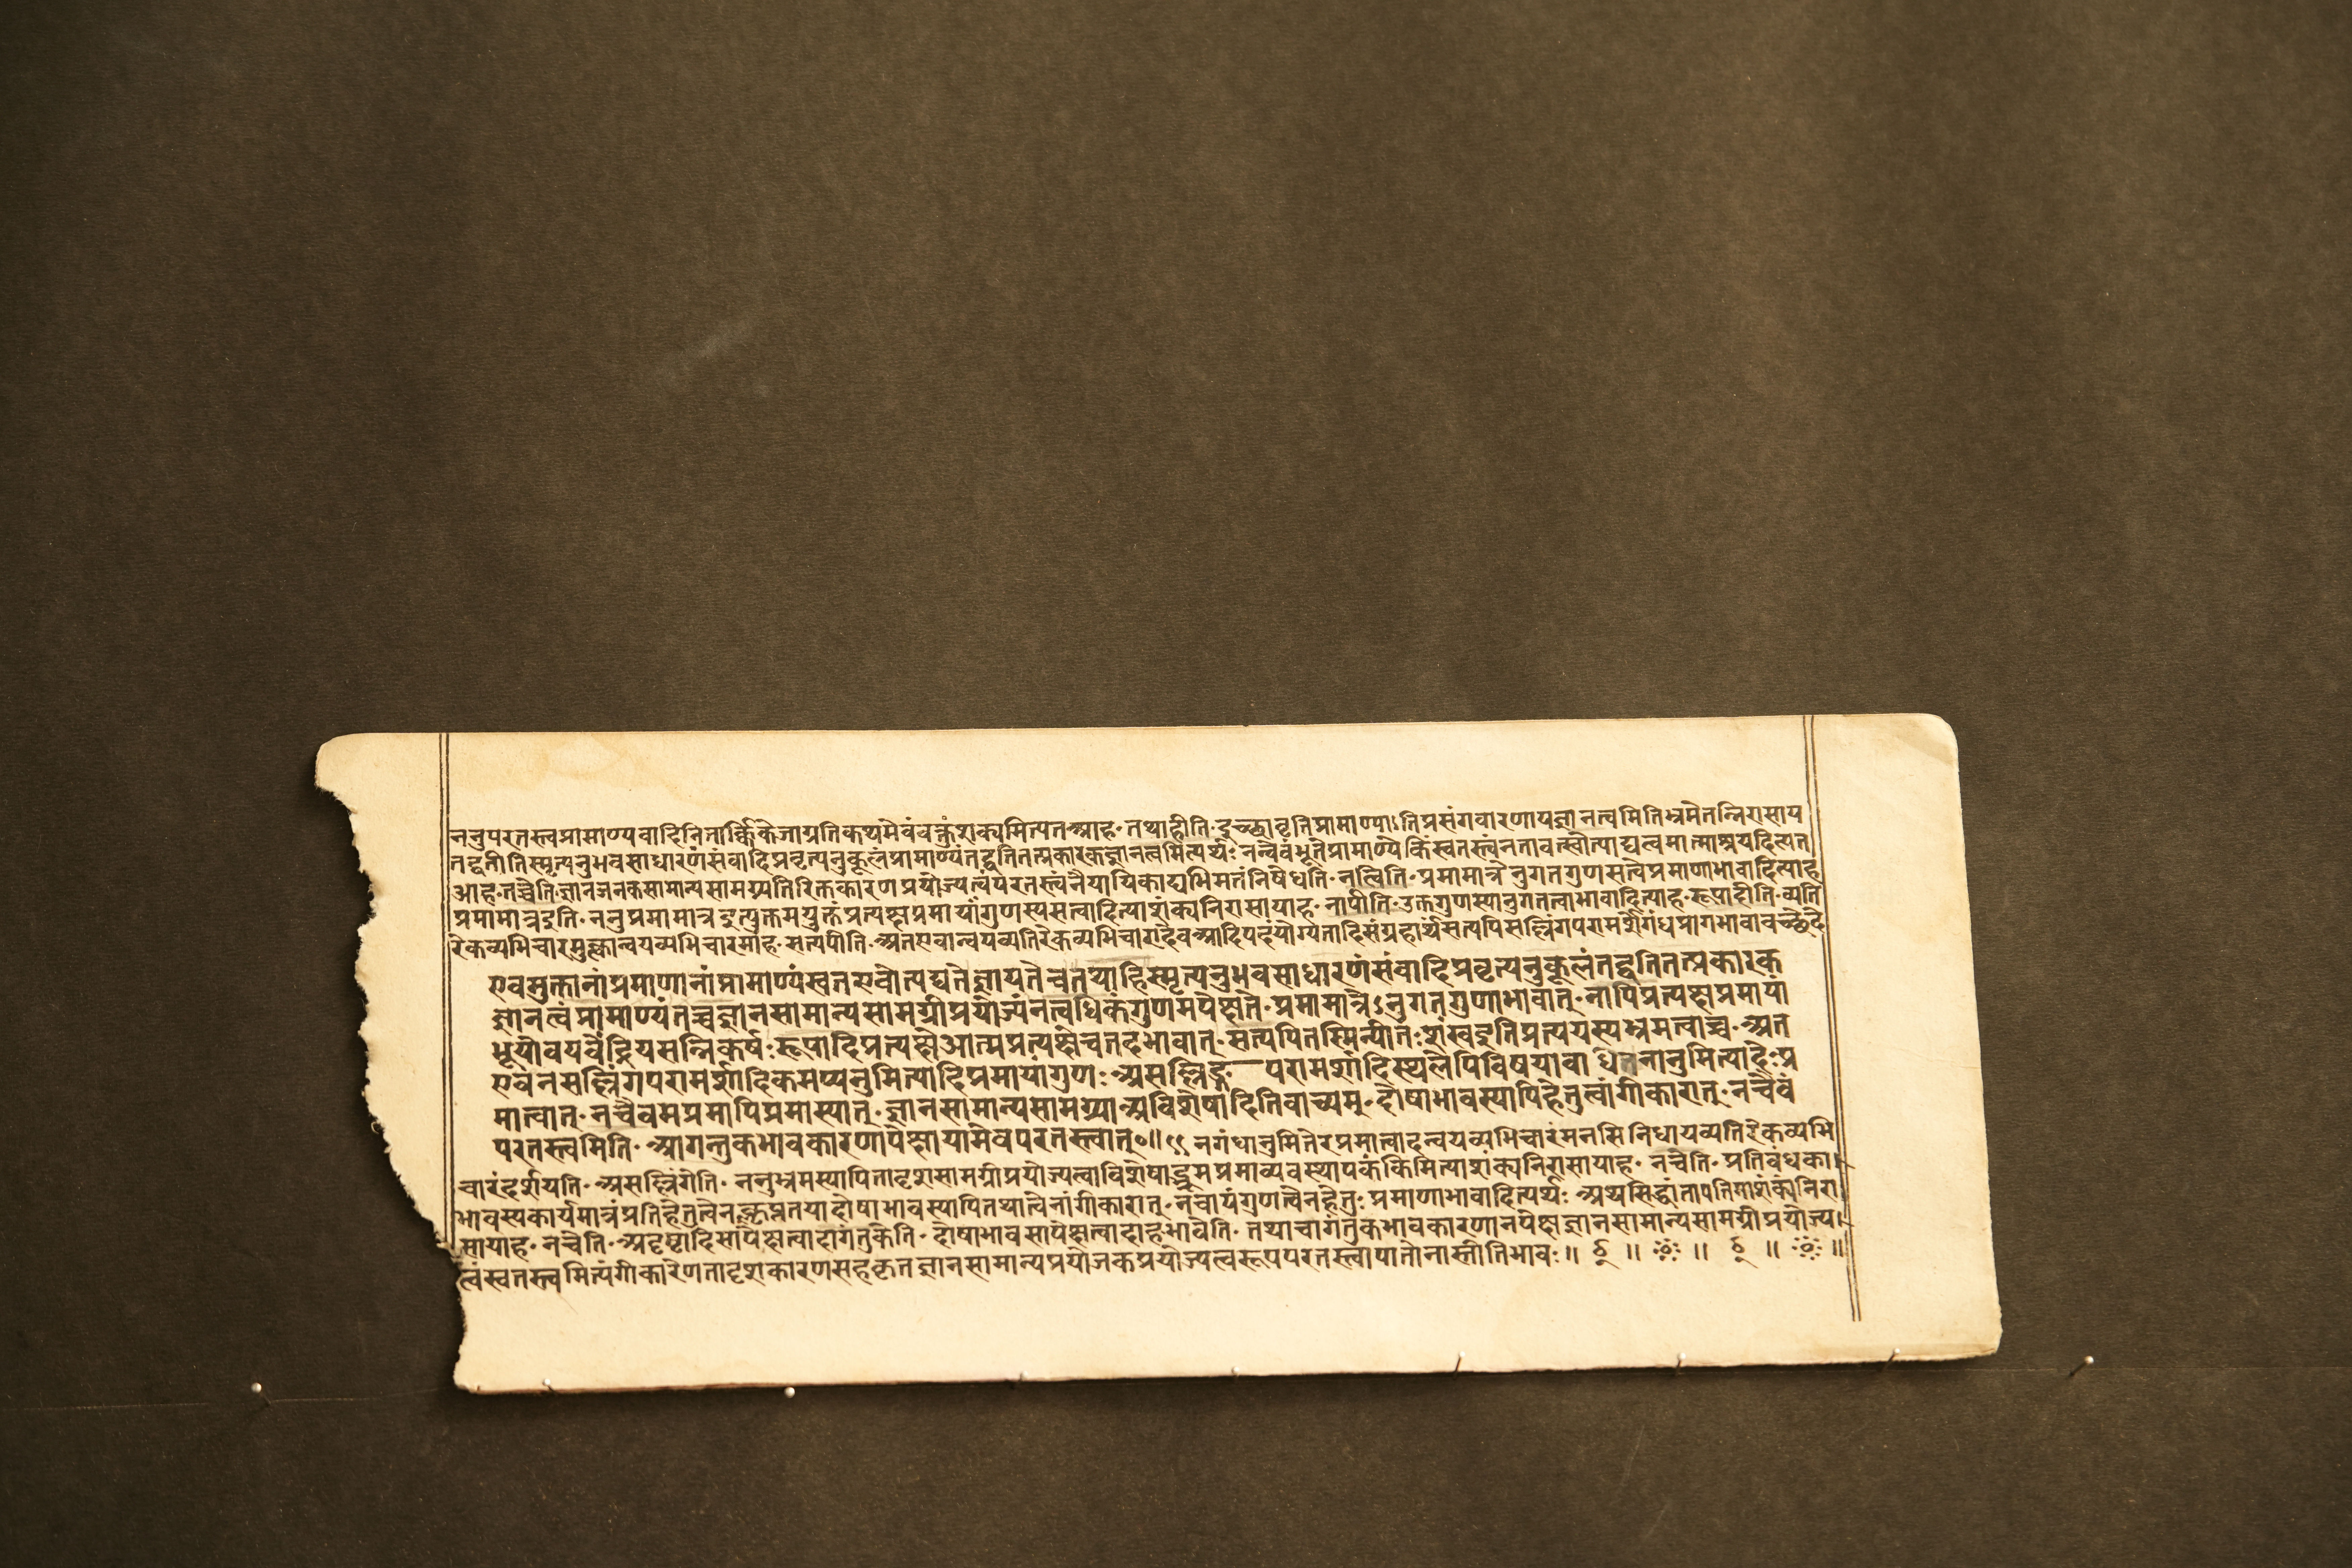 ननुपरतस्त्वप्रामाण्यवादिनितार्क्किकेजाग्रतिकथमेवंवक्तुंशक्यमित्यतआह॰तथाहीति॰इच्छावृत्तिप्रामाण्याऽतिप्रसंगवारणायज्ञानत्वमितिभ्रमेतन्निरासाय
तद्वतीतिस्मृत्यनुभवसाधारणंसंवादिप्रवृत्यनुकूलंप्रामाण्यंतद्वतितत्प्रकारकज्ञानत्वमित्यर्थः नन्वेवंभूतेप्रामाण्येकिंस्वतस्त्वंनतावत्स्वोत्पाद्यत्वमात्माश्रयादित्यत
आह॰तच्चेति॰ज्ञानजनकसामान्यसामग्र्यतिरिक्तकारणप्रयोज्यत्वंपरतस्त्वंनैयायिकाद्यभिमतंनिषेधति॰नत्विति॰प्रमामात्रे नुगतगुणसत्वेप्रमाणाभावादित्याह
प्रमामात्रइति॰ननुप्रमामात्र इत्युक्तमयुक्तंप्रत्यक्षप्रमायांगुणस्यसत्वादित्याशंक्यनिरासायाह॰नापीति॰उक्तगुणस्यानुगतत्वाभावादित्याह॰रूपादीति॰व्यति
रेकव्यभिचारमुक्त्वान्वयव्यभिचारमाह॰सत्यपीति॰अतएवान्वयव्यतिरेकव्यभिचारादेवआदिपदंयोग्यतादिसंग्रहार्थंसत्यपिसल्लिंगपरामर्शेगंधप्रागभावावच्छेदे
एवमुक्तानांप्रमाणानांप्रामाण्यंस्वतएवोत्पद्यतेज्ञायतेचतथाहिस्मृत्यनुभवसाधारणंसंवादिप्रवृत्यनुकूलंतद्वतितत्प्रकारक
ज्ञानत्वंप्रामाण्यंतच्चज्ञानसामान्यसामग्रीप्रयोज्यंनत्वधिकंगुणमपेक्षते॰प्रमामात्रेऽनुगतगुणाभावात्॰नापिप्रत्यक्षप्रमायां
भूयोवयवेंद्रियसन्निकर्षः रूपादिप्रत्यक्षेआत्मप्रत्यक्षेचतदभावात्॰सत्यपितस्मिन्पीतःशंखइतिप्रत्ययस्यभ्रमत्वाच्च॰अत
एवनसल्लिंगपरामर्शादिकमप्यनुमित्यादिप्रमायांगुणः॰असल्लिङ्ग—परामर्शादिस्थलेपिविषयाबाधेतनानुमित्यादेःप्र
मात्वात्॰नचैवमप्रमापिप्रमास्यात्॰ज्ञानसामान्यसामग्र्याअविशेषादितिवाच्यम्॰दोषाभावस्यापिहेतुत्वांगीकारात्॰नचैवं
परतस्त्वमिति॰आगन्तुकभावकारणापेक्षायामेवपरतस्त्वात्॰॥९९ नगंधानुमितेरप्रमात्वादन्वयव्यभिचारंमनसिनिधायव्यतिरेकव्यभि
चारंदर्शयति॰असल्लिंगेति॰ ननुभ्रमस्यापितादृशसामग्रीप्रयोज्यत्वाविशेषाद्भ्रमप्रमाव्यवस्थापकंकिमित्याशंक्यनिरासायाह॰ नचेति॰प्रतिबंधका
भावस्यकार्यमात्रंप्रतिहेतुत्वेनक्लृप्ततयादोषाभावस्यापितथात्वेनांगीकारात्॰नचायंगुणत्वेनहेतुः प्रमाणाभावादित्यर्थः॰अथसिद्धांतापत्तिमाशंक्यनिरा
सायाह॰ नचेति॰अदृष्टादिसापेक्षत्वादागंतुकेति॰ दोषाभावसापेक्षत्वादाहभावेति॰ तथाचागंतुकभावकारणानपेक्षज्ञानसामान्यसामग्रीप्रयोज्य
त्वंस्वतस्त्वमित्यंगीकारेणतादृशकारणसहकृतज्ञानसामान्यप्रयोजकप्रयोज्यत्वरूपपरतस्त्वापातोनास्तीतिभावः॥ ॥ ॥ ॥ ॥